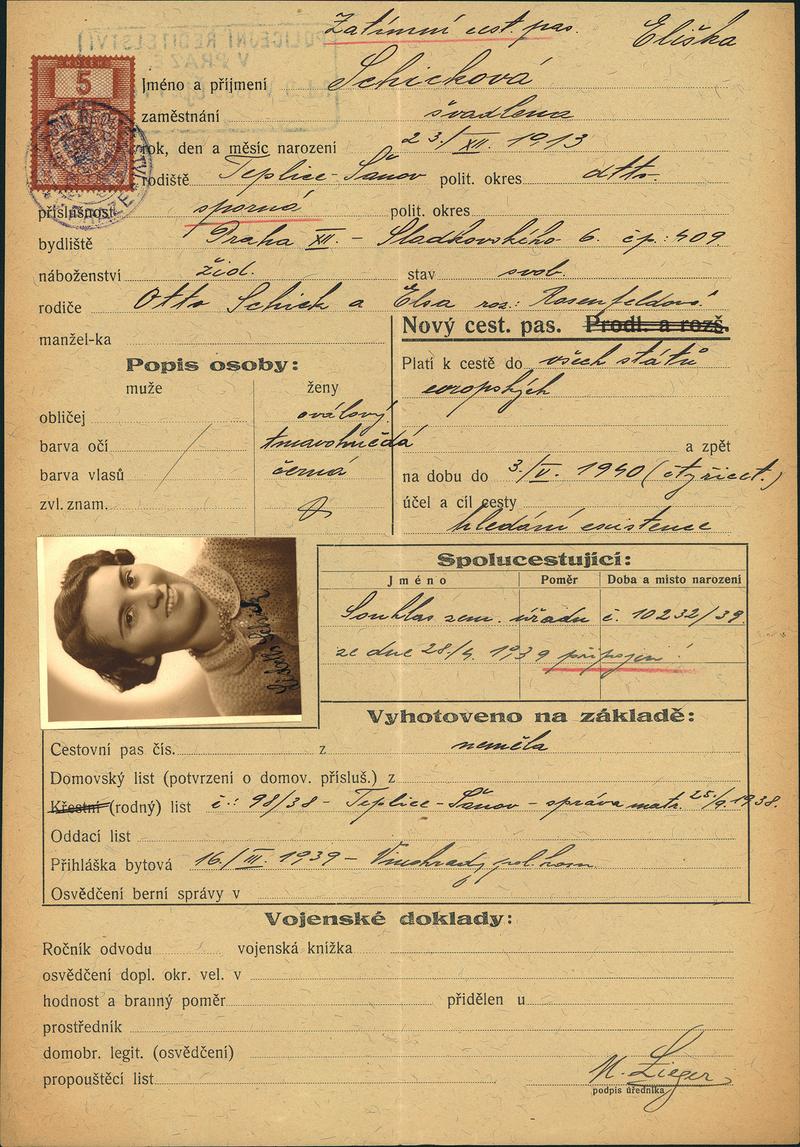 Zatímní cest. pas. Eliška
POLICEJNÍ ŘEDITELSTVÍ
V PRAZE
5
Jméno a příjmení Schicková
zaměstnání švadlena
rok, den a měsíc narození 23./XII. 1913
rodiště Teplice-Šanov polit. okres dtto.
příslušnost sporná polit. okres
bydliště Praha XII. - Sladkovského 6. čp.: 409
náboženství žid. stav svob.
rodiče Otto Schick a Elsa roz.: Rosenfeldová
manžel-ka
Nový cest. pas. Prodl. a rozš.
Popis osoby:
muže ženy
obličej oválový
barva očí tmavohnědá
barva vlasů černá
zvl. znam.
Platí k cestě do všech států
evropských
a zpět
na dobu do 3./V. 1940 (čtyřicet.)
účel a cíl cesty
hledání existence
Spolucestující:
Jméno Poměr Doba a místo narození
Souhlas zem. úřadu č. 10232/39
ze dne 28/4. 1939 připojen!
Vyhotoveno na základě:
Cestovní pas čís. z neměla
Domovský list (potvrzení o domov. přísluš.) z
Křestní (rodný) list č.: 98/38 - Teplice-Šanov - správa matr. 25./9. 1938.
Oddací list
Přihláška bytová 16./III. 1939 - Vinohrady pol. kom.
Osvědčení berní správy v
Vojenské doklady:
Ročník odvodu vojenská knížka
osvědčení dopl. okr. vel. v
hodnost a branný poměr přidělen u
prostředník
domobr. legit. (osvědčení)
propouštěcí list
M. Zieger
podpis úředníka